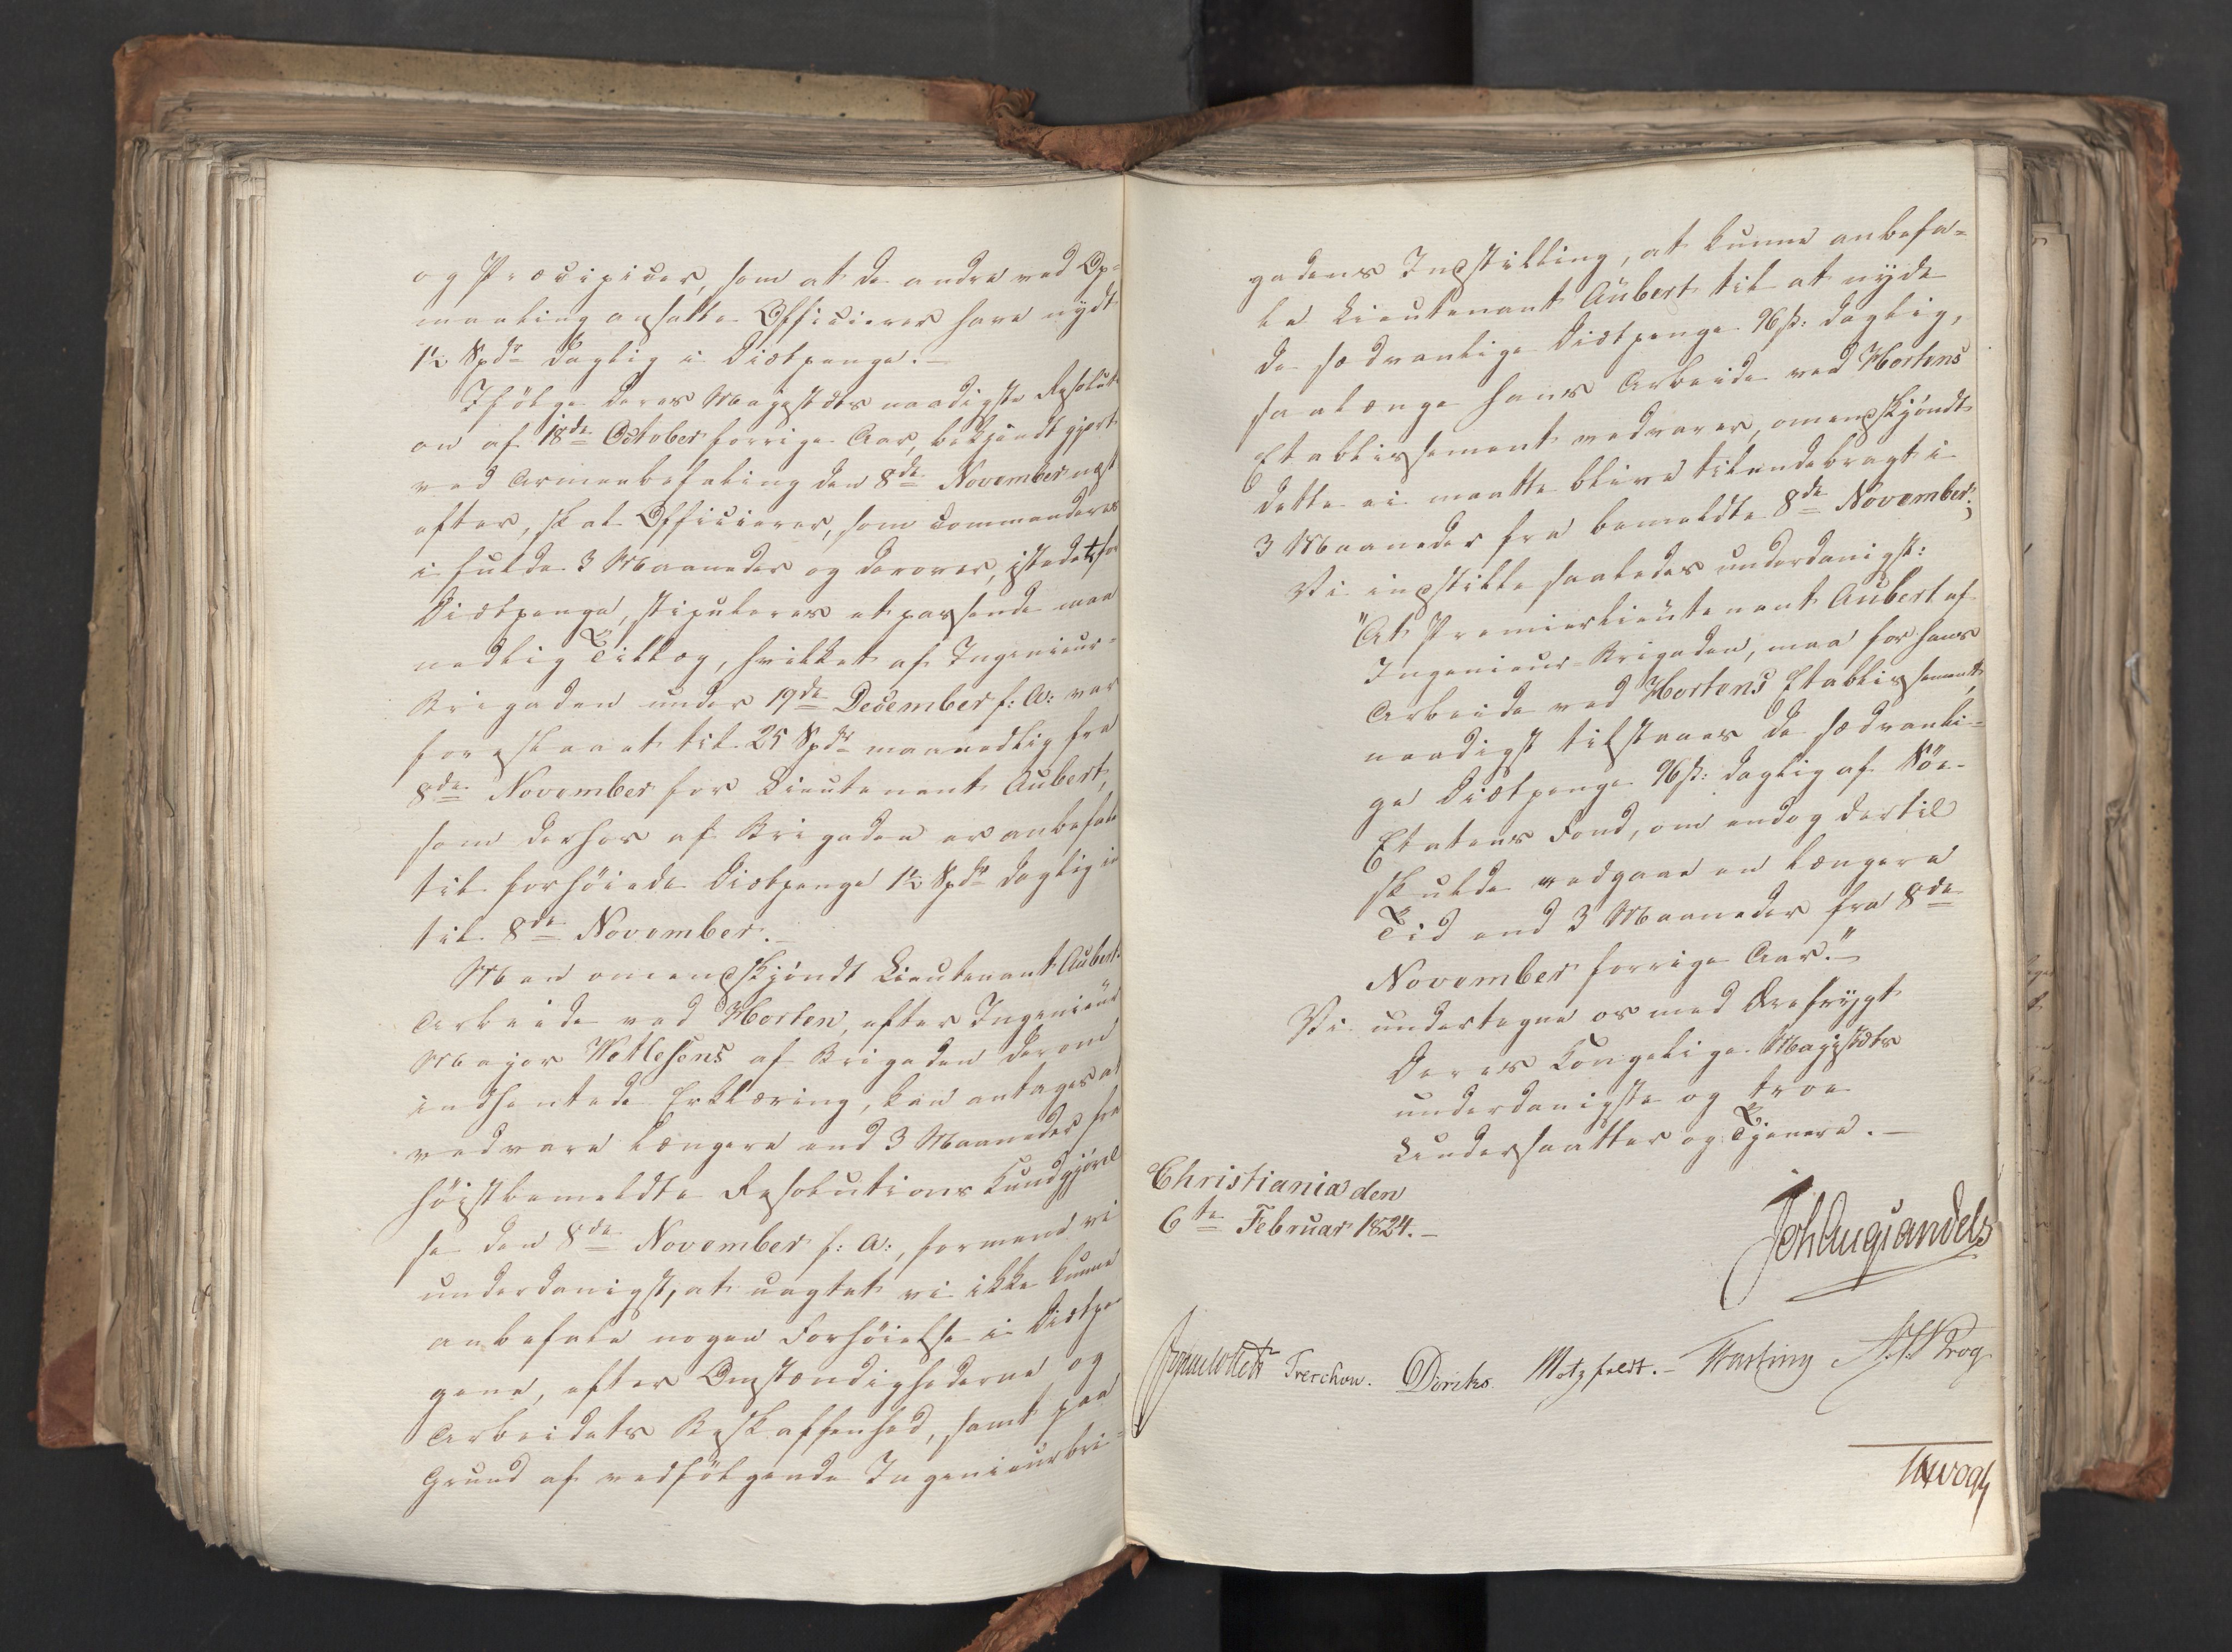 og Præcipicer, som at de andre ved Op-
maaling ansatte Officierer have nydt
1½ Spdr daglig i Diætpenge.—
Ifölge Deres Majestæts naadigste Resoluti-
on af 18de October forrige Aar, bekjendtgjort
ved Armeebefaling den 8de November næst
efter, skal Officierer, som commanderes
i fulde 3 Maaneder og derover, istedetfor
Diætpenge, stipuleres et passende maa
nedlig Tillæg, hvilket af Ingenieur-
Brigaden under 19de December f: A: var
foreslaaet til 25 Spdr maanedlig fra
8de November for Lieutenant Aubert,
som derhos af Brigaden er anbefalet
til forhöiede Diætpenge 1½ Spdr daglig ind
til 8de November.—
Men omendskjöndt Lieutenant Auberts
Arbeide ved Horten, efter Ingenieur
Major Wetlesens af Brigaden derom
indhentede Erklæring, kan antages at
vedvare længere end 3 Maaneder fra
höistbemeldte Resolutions Kundgjörel
se den 8de November f: A:, formene vi
underdanigst, at uagtet vi ikke kunne
anbefale nogen Forhöielse i Diætpe-
gene, efter Omstændighederne og
Arbeidets Beskaffenhed, samt paa
Grund af vedfölgende Ingenieurbri-
gadens Indstilling, at kunne anbefa-
le Lieutenant Aubert til at nyde
de sædvanlige Diætpenge 96 ß: daglig,
saalænge hans Arbeide ved Hortens
Etablissement vedvarer, omendskjöndt
dette ei maatte blive tilendebragt i
3 Maaneder fra bemeldte 8de November;
Vi indstille saaledes underdanigst:
"At Premierlieutenant Aubert af
Ingenieur-Brigaden, maa for hans
Arbeide ved Hortens Etablissement,
naadigst tilstaaes de sædvanli-
ge Diætpenge 96 ß: daglig af Söe-
Etatens Fond, om endog dertil
skulde medgaae en længere
Tid end 3 Maaneder fra 8de
November forrige Aar."—
Vi undertegne os med Ærefrygt
Deres Kongelige Majestæts
underdanigste og troe
Undersaatter og Tjenere.—
Christiania den
6te Februar 1824.—
Joh Aug Sandels
Sommerhielm Treschow. Diriks Motzfeldt.— Fasting P. Krog